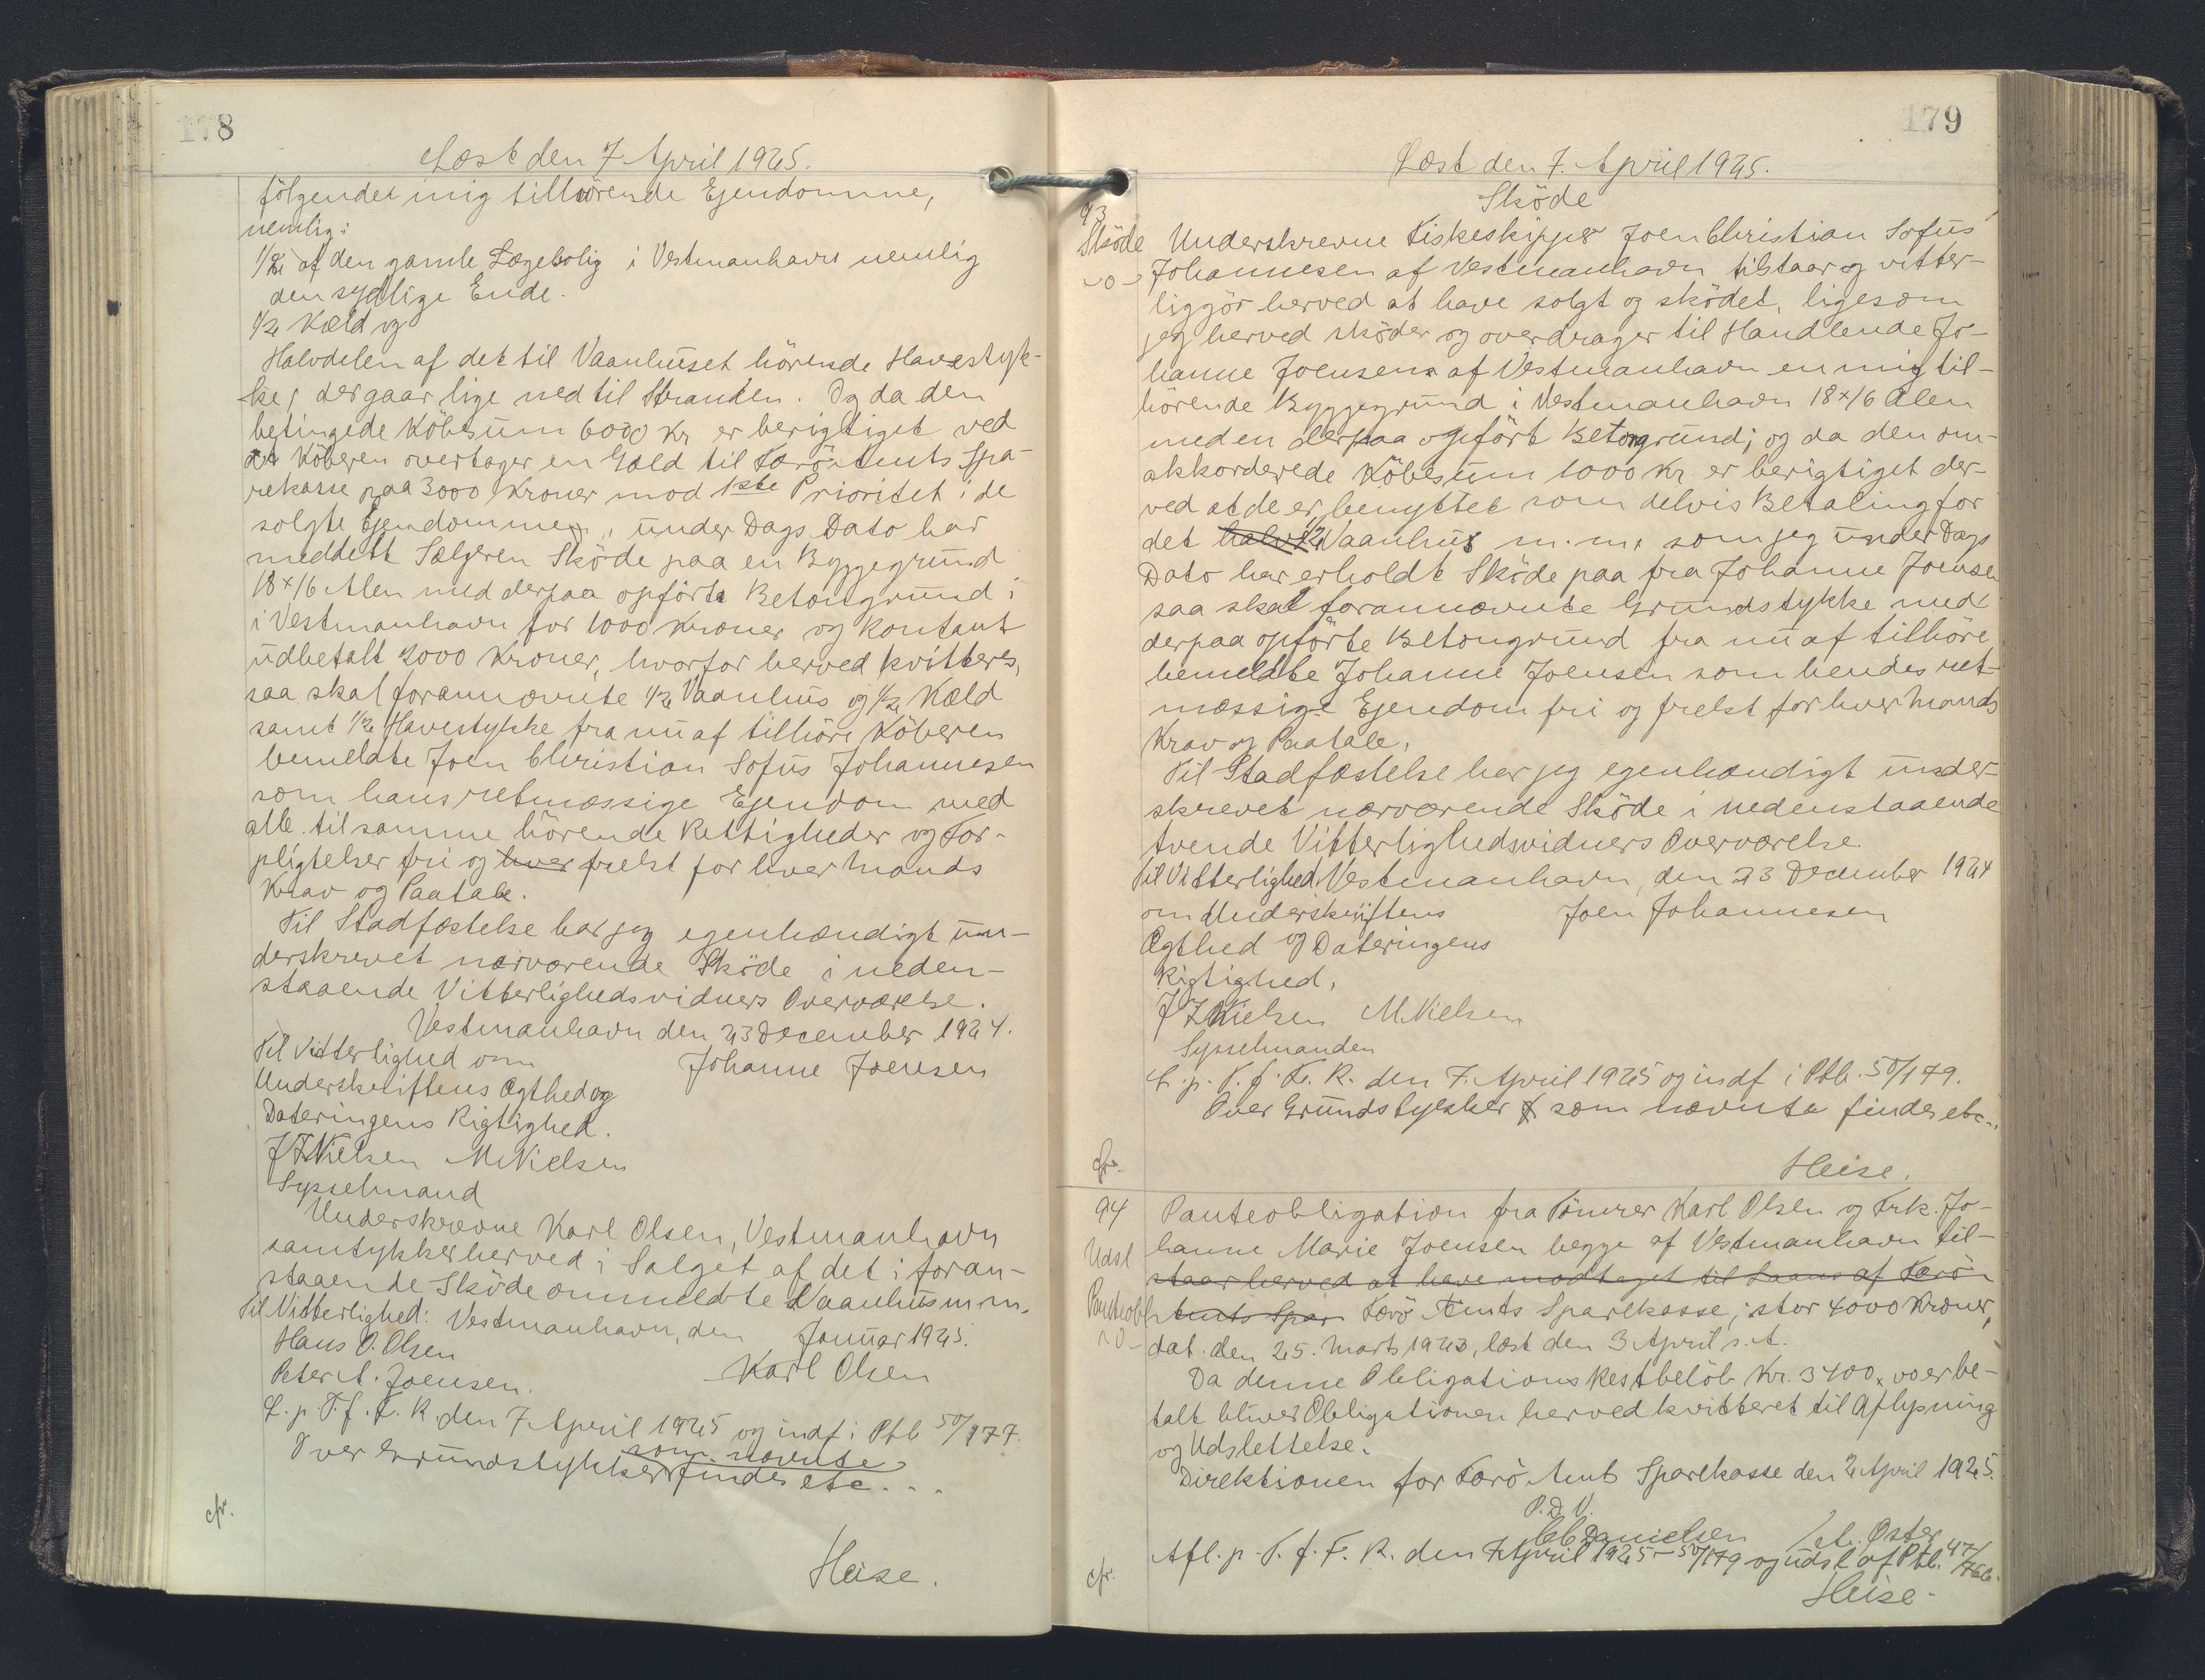 178
Læst den 7 April 1925.
følgende mig tilhørende Ejendomme,
nemlig:
1/2 af den gamle Lægebolig i Vestmanhavn nemlig
den sydlige Ende.
1/2 Kæld og
Halvdelen af det til Vaanhuset hörende Havestyk-
ke, der gaar lige ned til Stranden. Og da den
betingede Köbesum 6000 Kr er berigtiget ved
at Köberen overtager en Gæld til Færö Amts Spa-
rekasse paa 3000 Kroner mod 1ste Prioritet i de
solgte Ejendomme, under Dags Dato har
meddelt Sælgeren Sköde paa en Byggegrund
18x16 Alen med derpaa opförte Betongrund i
i Vestmanhavn for 1000 Kroner og kontant
udbetalt 2000 Kroner, hvorfor herved kvitteres,
saa skal forannævnte 1/2 Vaanhus og 1/2 Kæld
samt 1/2 Havestykke fra nu af tilhöre Köberen
bemeldte Joen Christian Sofus Johannesen
som hans retmæssige Ejendom med
alle til samme hörende Rettigheder og For-
pligtelser fri og hver frelst for hver Mands
Krav og Paatale.
Til Stadfæstelse har jeg egenhændigt un-
derskrevet nærværende Sköde i neden-
staaende Vitterlighedsvidners Overværelse.
Vestmanhavn den 23 December 1924.
Til Vitterlighed om
Johanne Joensen
Underskriftens Ægthed og
Dateringens Rigtighed.
J F Nielsen M Nielsen
Sysselmand
Underskrevne Karl Olsen, Vestmanhavn
samtykker herved i Salget af det i foran-
staaende Sköde ommeldte Vaanhus m.m.
Til Vitterlighed: Vestmanhavn, den Januar 1925.
Hans O. Olsen
Karl Olsen
Peter A. Joensen.
L. p. T. f. F. R. den 7 April 1925 og indf i Ptb 50/177.
som nævnte
Over Grundstykker findes etc...
cfr.
Heise.
179
Læst den 7. April 1925.
Sköde
93
Sköde
-0-
Underskrevne Fiskeskipper Joen Christian Sofus
Johannesen af Vestmanhavn tilstaar og vitter-
liggör herved at have solgt og sködet, ligesom
jeg herved sköder og overdrager til Handlende Jo-
hanne Joensen af Vestmanhavn en mig til-
hörende Byggegrund i Vestmanhavn 18x16 Alen
med en derpaa opfört Betongrund; og da den om-
akkorderede Köbesum 1000 Kr. er berigtiget der-
ved at de er benyttet som delvis Betaling for
det halve 1/2 Vaanhus m.m. som jeg under Dags
Dato har erholdt Sköde paa fra Johanne Joensen
saa skal forannævnte Grundstykke med
derpaa opförte Betongrund fra nu af tilhöre
bemeldte Johanne Joensen som hendes ret-
mæssige Ejendom fri og frelst for hver Mands
Krav og Paatale.
Til Stadfæstelse har jeg egenhændigt under-
skrevet nærværende Sköde i nedenstaaende
tvende Vitterlighedsvidners Overværelse.
Til Vitterlighed Vestmanhavn, den 23 December 1924
om Underskriftens
Joen Johannesen
Ægthed og Dateringens
Rigtighed,
J F Nielsen M Nielsen
Sysselmanden
L. p. T. f. F. R. den 7. April 1925 og indf i Ptb. 50/179.
Over Grundstykker som nævnte findes etc..
cfr.
Heise.
94
Udsl
Panteobl
-0-
Panteobligation fra Tömrer Karl Olsen og Frk. Jo-
hanne Marie Joensen begge af Vestmanhavn til-
staar herved at have modtaget til Laans af Færö
Amts Spar Færö Amts Sparekasse, stor 4000 Kroner,
dat. den 25. Marts 1923, læst den 3 April s. A.
Da denne Obligations Restbelöb Kr. 3400,00 er be-
talt bliver Obligationen herved kvitteret til Aflysning
og Udslettelse.
Direktionen for Færö Amts Sparekasse den 2 April 1925.
P.D.V.
CC Danielsen / A. Öster
Afl. p. T. f. F. R. den 7 April 1925 - 50/179 og udsl. af Ptb. 47/766.
cfr.
Heise.